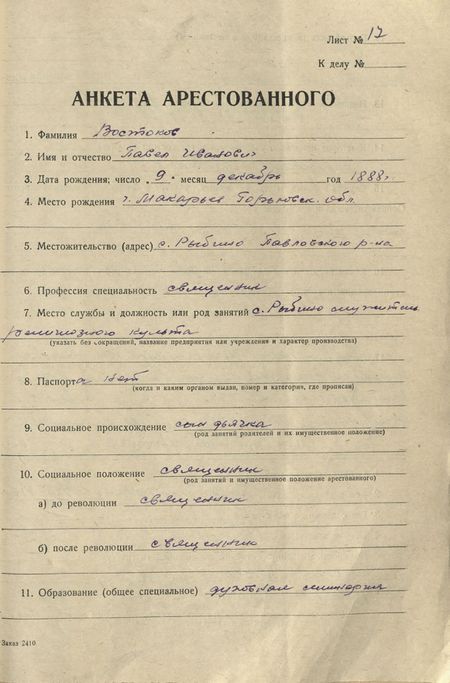 Лист № 17
К делу №
АНКЕТА АРЕСТОВАННОГО
1. Фамилия Востоков
2. Имя и отчество Павел Иванович
3. Дата рождения: число „9“ месяц декабрь год 1888 г.
4. Место рождения г. Макарьев Горьковск. обл.
5. Местожительство (адрес) с. Рыбино Павловского р-на
6. Профессия специальность священник
7. Место службы и должность или род занятий с. Рыбино служитель
религиозного культа
(указать без сокращений, название предприятия или учреждения и характер производства)
8. Паспорта нет
(когда и каким органом выдан, номер и категория, где прописан)
9. Социальное происхождение сын дьячка
(род занятий родителей и их имущественное положение)
10. Социальное положение священник
(род занятий и имущественное положение арестованного)
а) до революции священник
б) после революции священник
11. Образование (общее специальное) духовная семинария
Заказ 2410